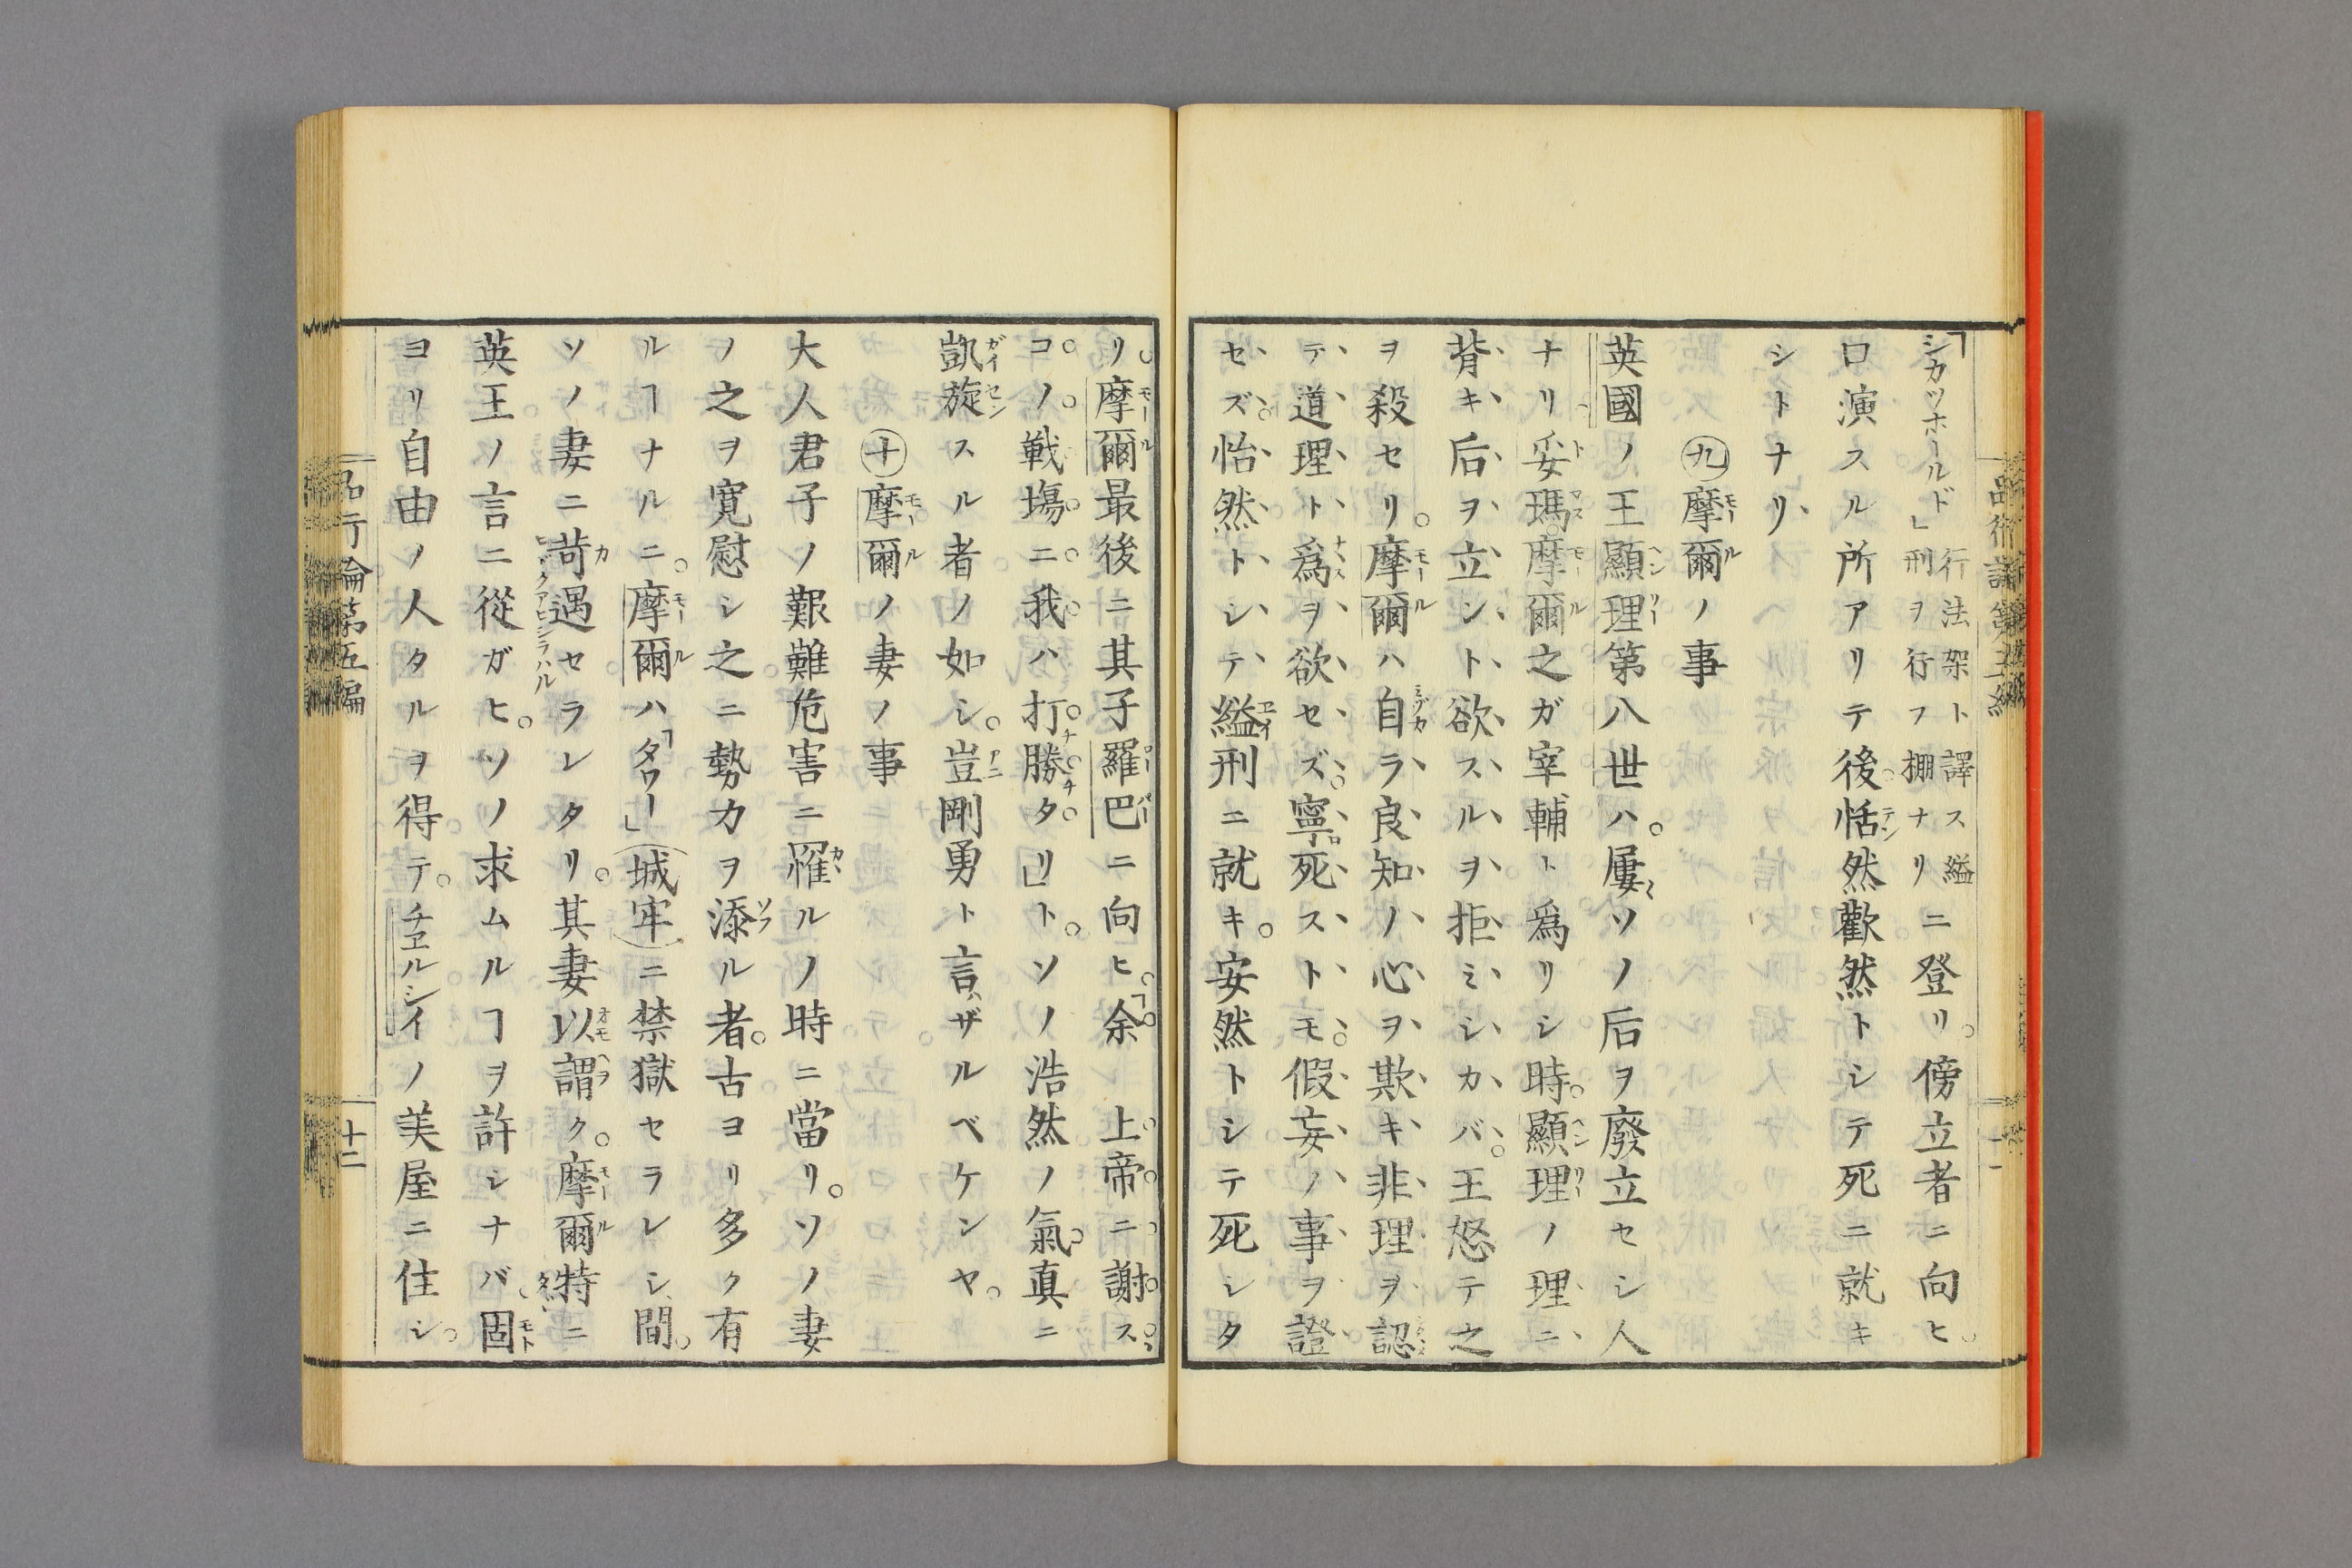 「シカッホールド」行法架ト譯ス縊刑ヲ行フ棚ナリニ登リ。傍立者ニ向ヒ。
口演スル所アリテ後。恬然歡然トシテ死ニ就キ
シトナリ、
㊈摩爾ノ事
英國ノ王顯理第八世ハ。屢〻ソノ后ヲ廢立セシ人
ナリ。妥瑪。摩爾之ガ宰輔ト爲リシ時。顯理ノ理ニ
背キ后ヲ立ント欲スルヲ拒ミシカバ。王怒テ之
ヲ殺セリ。摩爾ハ自ラ良知ノ心ヲ欺キ非理ヲ認
テ道理ト爲ヲ欲セズ。寧ロ死ストモ。假妄ノ事ヲ證
セズ。怡然トシテ縊刑ニ就キ。安然トシテ死シタ
リ。摩爾最後ニ其子羅巴ニ向ヒ。「余 上帝ニ謝ス。
コノ戰塲ニ我ハ打勝タリ」ト。ソノ浩然ノ氣。真ニ
凱旋スル者ノ如シ。豈剛勇ト言ハザルベケンヤ。
㊉摩爾ノ妻ノ事
大人君子ノ艱難危害ニ罹ルノ時ニ當リ。ソノ妻
ノ之ヲ寬慰シ之ニ勢力ヲ添ル者。古ヨリ多ク有
ルヿナルニ。摩爾ハ「タワー」(城牢)ニ禁獄セラレシ間。
ソノ妻ニ苛遇セラレタリ。其妻以謂ク。摩爾特ニ
英王ノ言ニ從ガヒ。ソノ求ムルヿヲ許シナバ。固
ヨリ自由ノ人タルヲ得テ。チヱルシイノ美屋ニ住シ。
品行論第五編
十二